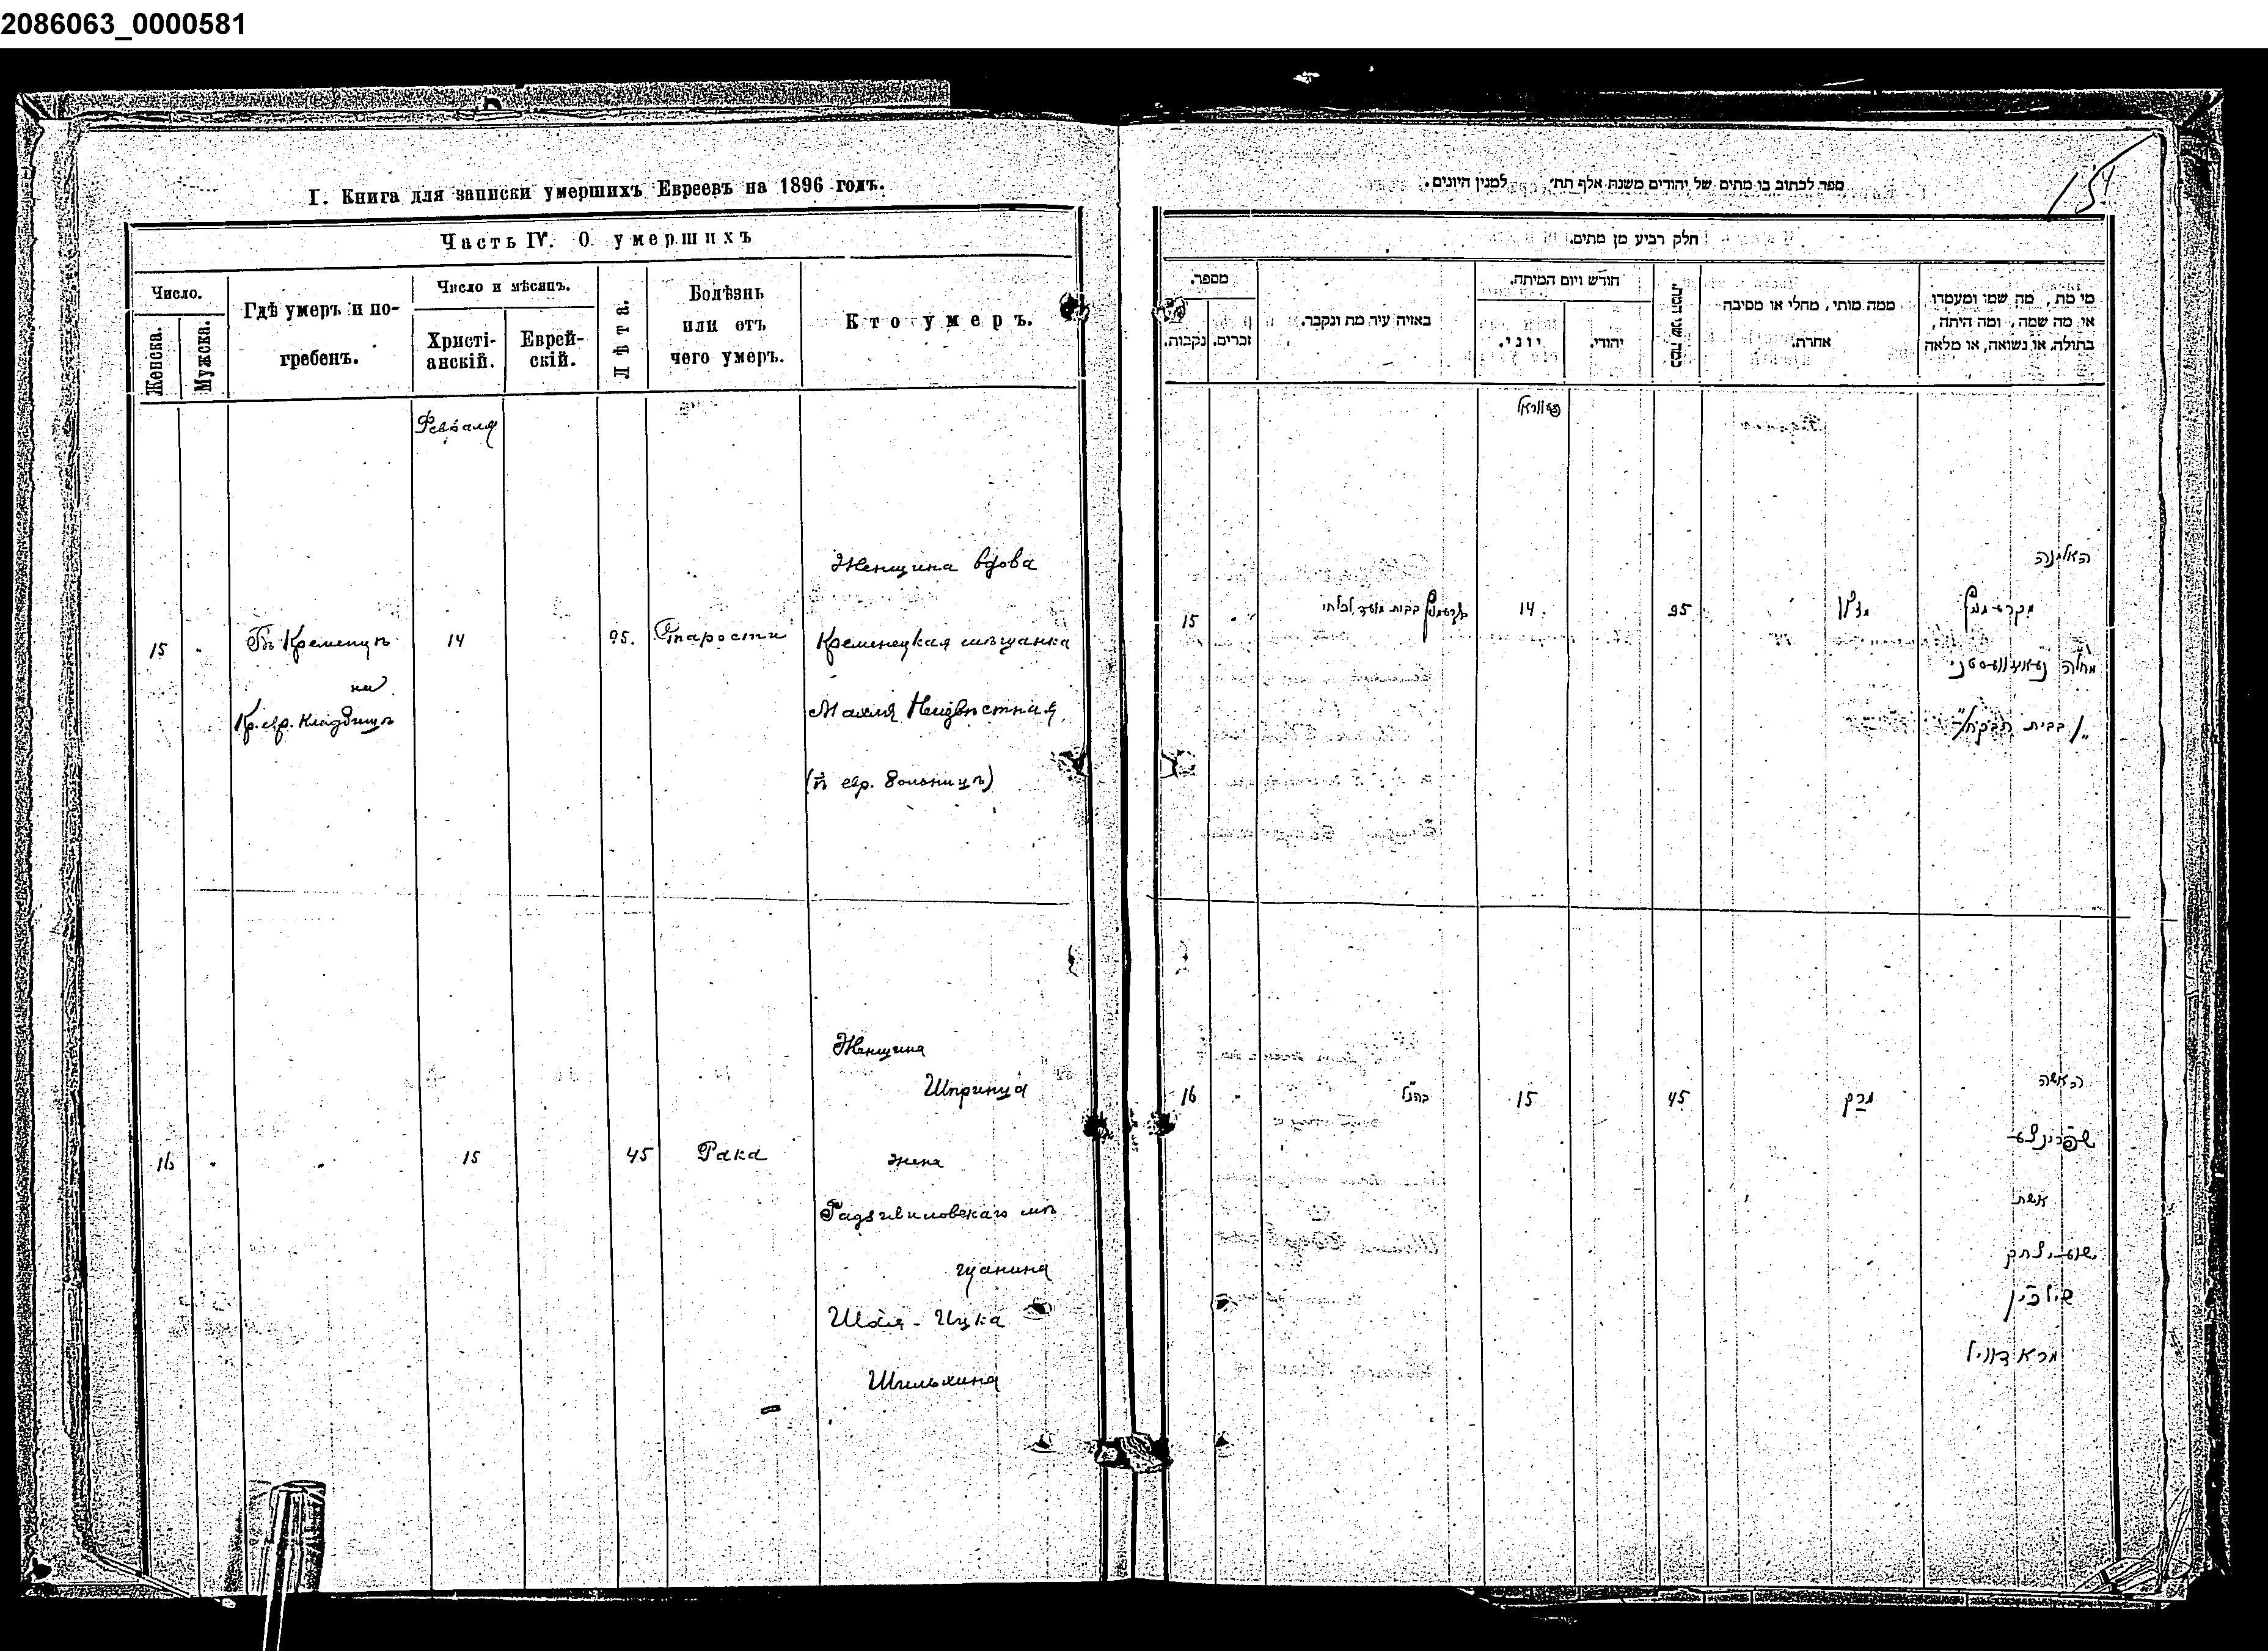 2086063_0000581
I. Книга для записки умершихъ Евреевъ на 1896 годъ.
Часть IV. О умершихъ
Число.
Женска.
Мужска.
Гдѣ умеръ и по-
гребенъ.
Число и мѣсяцъ.
Христі-
анскій.
Еврей-
скій.
Лѣта.
Болѣзнь
или отъ
чего умеръ.
Кто умеръ.
Февраля
15
Въ Кременцѣ
на
Кр. евр. кладбищѣ
14
95.
Старости
Женщина вдова
Кременецкая мѣщанка
Махля Неизвѣстная
(въ евр. больницѣ)
16
15
45
Рака
Женщина
Шпринца
жена
Радзивиловскаго мѣ
щанина
Шая-Ицка
Шильхина
ספר לכתוב בו מתים של יהודים משנת אלף תת׳ למנין היונים.
15
חלק רביע מן מתים.
מספר.
נקבות.
זכרים.
באיזה עיר מת ונקבר.
חודש ויום המיתה.
יוני.
יהודי.
כמה שני המת.
ממה מותו, מחלי או מסיבה
אחרת.
מי מת, מה שמו ומעמדו
או מה שמה, ומה היתה,
בתולה, או נשואה, או מלאה
15
14
95
האלמנה
מקרעמניץ
מחלה
בבית
16
כהנ״ל
15
45
האשה
שפרינצע
אשת
שעי׳ יצחק
שילכין